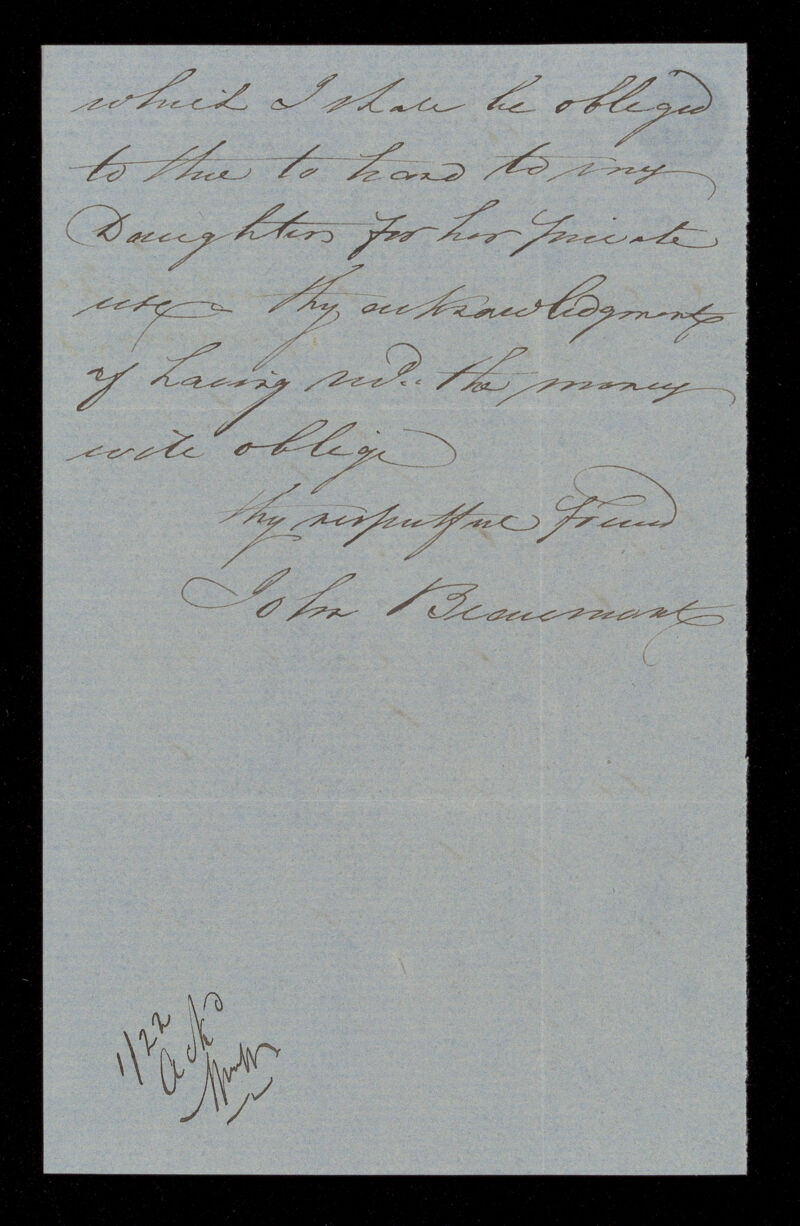 which I shall be obliged
to thee to hand to my
Daughters for her private
use thy acknowledgment
of having recd. the money
will oblige
thy respectful Friend
John Beaumont
1/22
Ackd